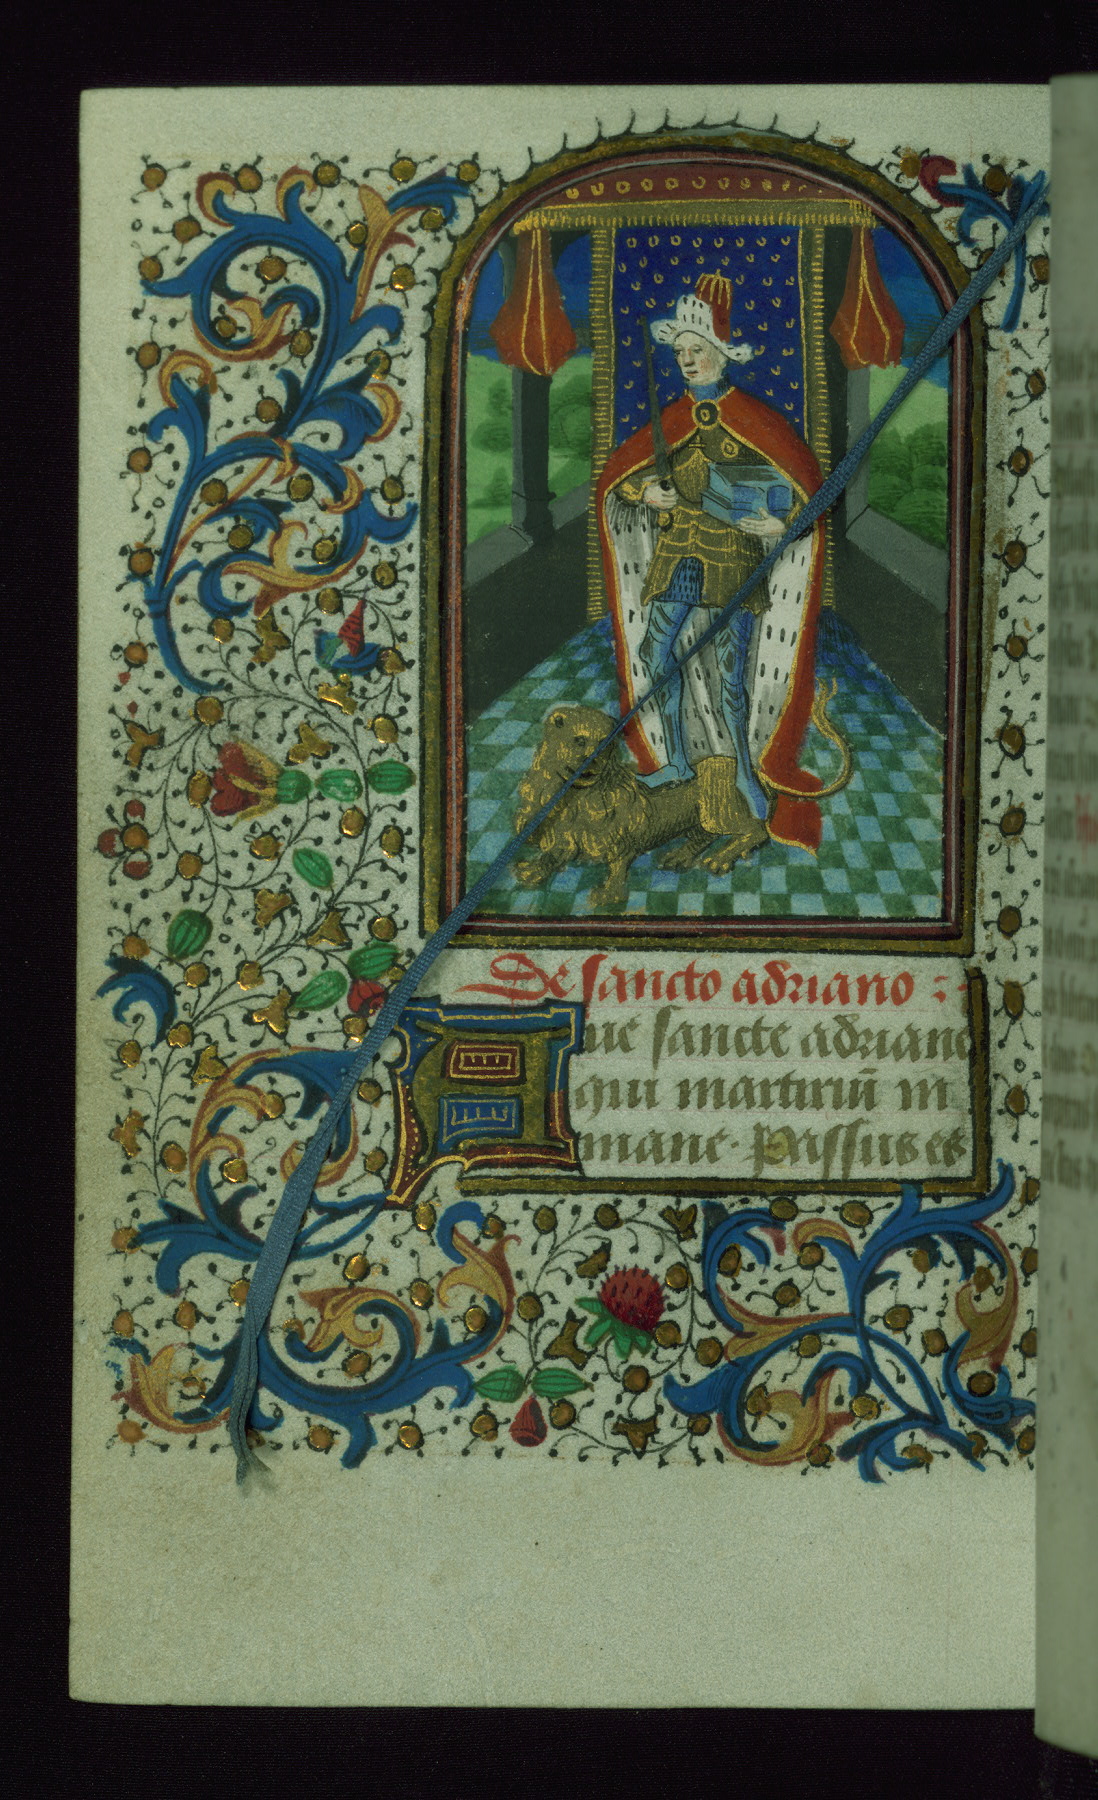 De sancto adriano :·
Aue sancte adriane
qui martiriū in
mane· passus es